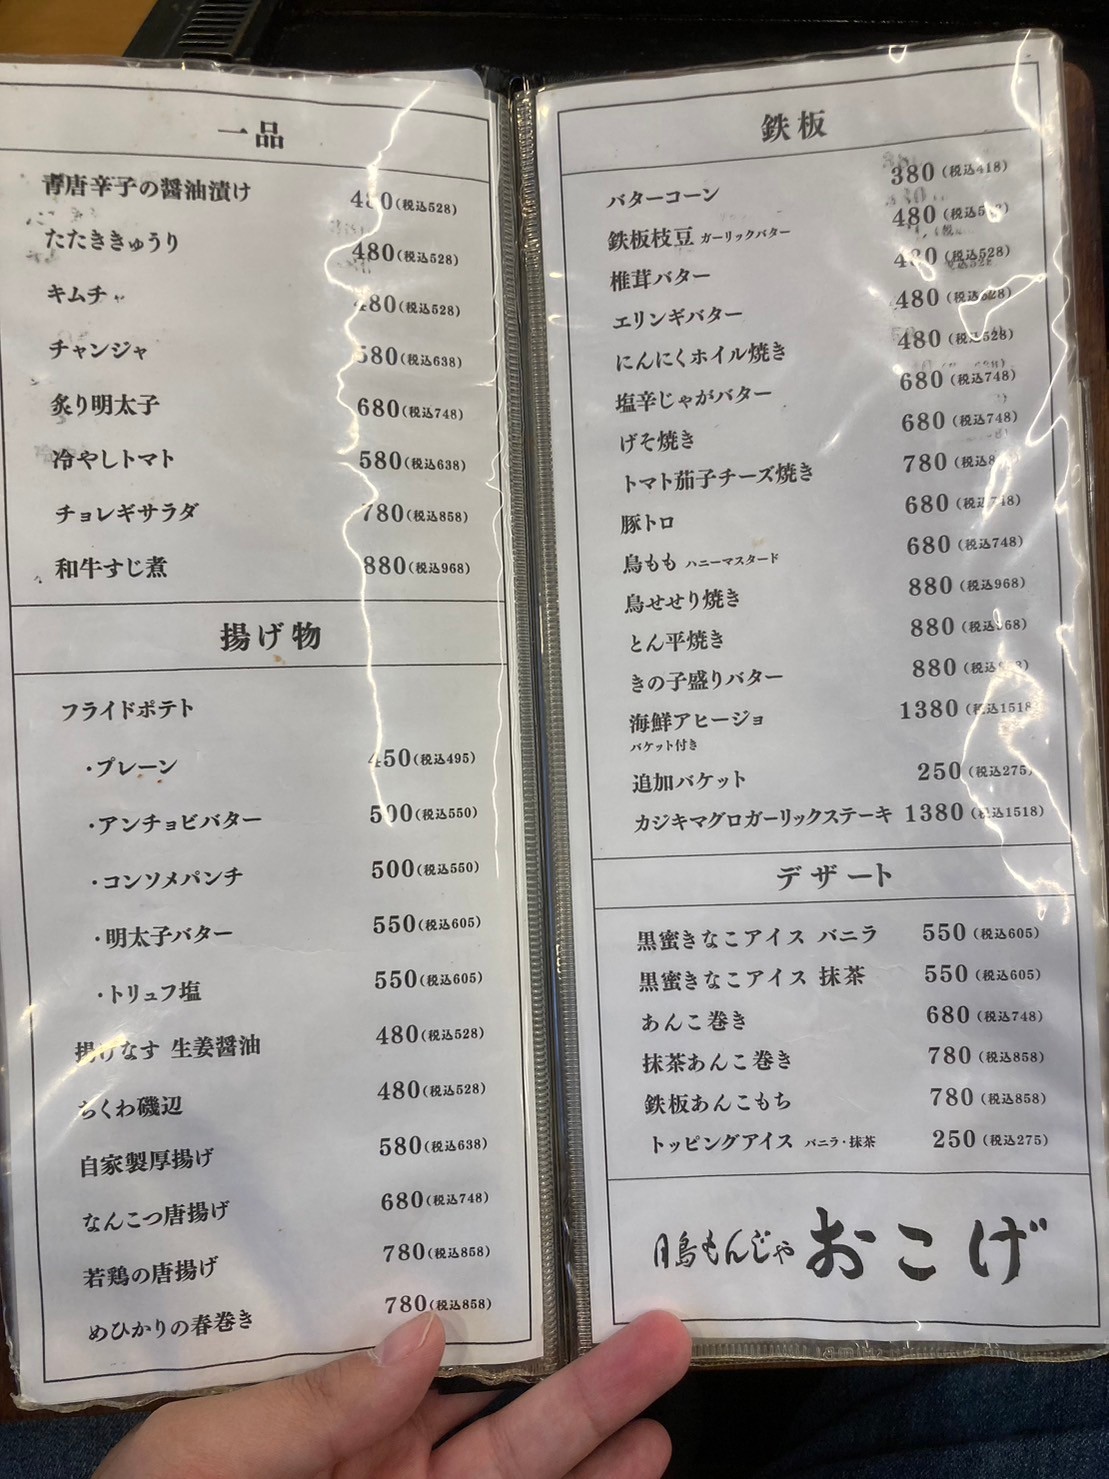 一品
青唐辛子の醤油漬け 480(税込528)
たたききゅうり 480(税込528)
キムチ 480(税込528)
チャンジャ 580(税込638)
炙り明太子 680(税込748)
冷やしトマト 580(税込638)
チョレギサラダ 780(税込858)
和牛すじ煮 880(税込968)
揚げ物
フライドポテト
・プレーン 450(税込495)
・アンチョビバター 500(税込550)
・コンソメパンチ 500(税込550)
・明太子バター 550(税込605)
・トリュフ塩 550(税込605)
揚げなす 生姜醤油 480(税込528)
ちくわ磯辺 480(税込528)
自家製厚揚げ 580(税込638)
なんこつ唐揚げ 680(税込748)
若鶏の唐揚げ 780(税込858)
めひかりの春巻き 780(税込858)
鉄板
バターコーン 380(税込418)
鉄板枝豆 ガーリックバター 480
椎茸バター 480(税込528)
エリンギバター 480(税込528)
にんにくホイル焼き 480(税込528)
塩辛じゃがバター 680(税込748)
げそ焼き 680(税込748)
トマト茄子チーズ焼き 780
豚トロ 680(税込748)
鳥もも ハニーマスタード 680(税込748)
鳥せせり焼き 880(税込968)
とん平焼き 880(税込968)
きの子盛りバター 880
海鮮アヒージョ 1380(税込1518)
バケット付き
追加バケット 250(税込275)
カジキマグロガーリックステーキ 1380(税込1518)
デザート
黒蜜きなこアイス バニラ 550(税込605)
黒蜜きなこアイス 抹茶 550(税込605)
あんこ巻き 680(税込748)
抹茶あんこ巻き 780(税込858)
鉄板あんこもち 780(税込858)
トッピングアイス バニラ・抹茶 250(税込275)
月島もんじゃ おこげ